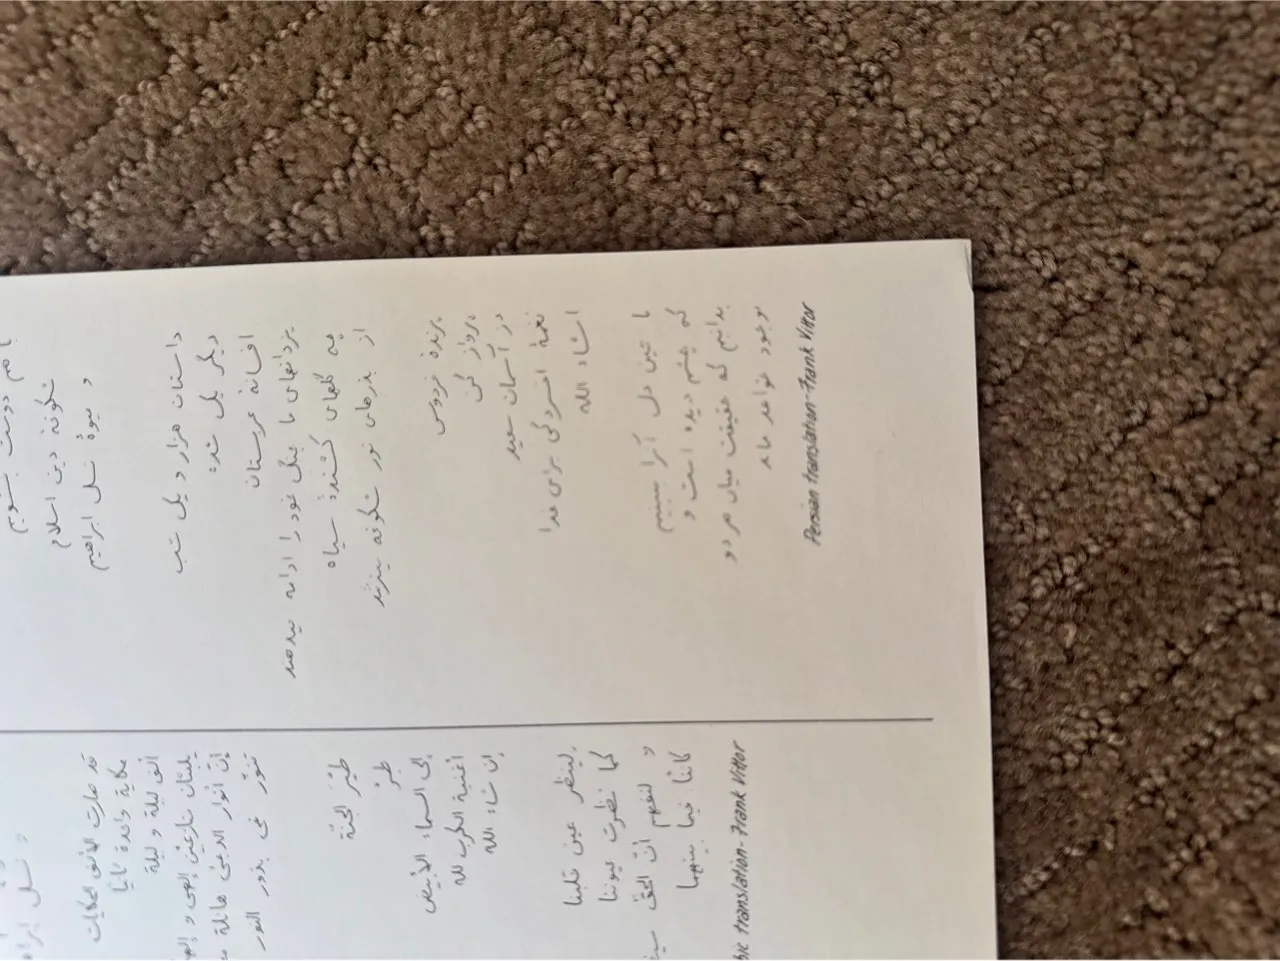 با هم دوست بشویم
شکوفهٔ دین اسلام
و میوهٔ نسل ابراهیم
داستان هزار و یک شب
دیگر یکی شد
افسانه عربستان
یزدانهای ما جنگ خود را ادامه میدهند
چه گلهای کشندهٔ سیاه
از بذرهای نور شکوفه میزند
پرندهٔ فردوس
پرواز کن
در آسمان سفید
نغمهٔ افسردگی برای خدا
انشاء الله
با عین دل آنرا ببینیم
که چشم دیده است و
بدانیم که حقیقت میان هر دو
بوجود خواهد ماند
Persian translation-Frank Vittor
و نسل
قد صارت الألف الحكايات
حكاية واحدة ثانيا
ألف ليلة و ليلة
نازعين إلهي و
إن أنوار الدجى هائلة
تنوّر في بذور النور
طير الجنّة
طرْ
إلى السماء الأبيض
أغنية الكرب لله
إن شاء الله
لينظر عين قلبنا
كما نظرت عيوننا
و لنفهم أن الحق
كائنا فيما بينهما
bic translation-Frank Vittor